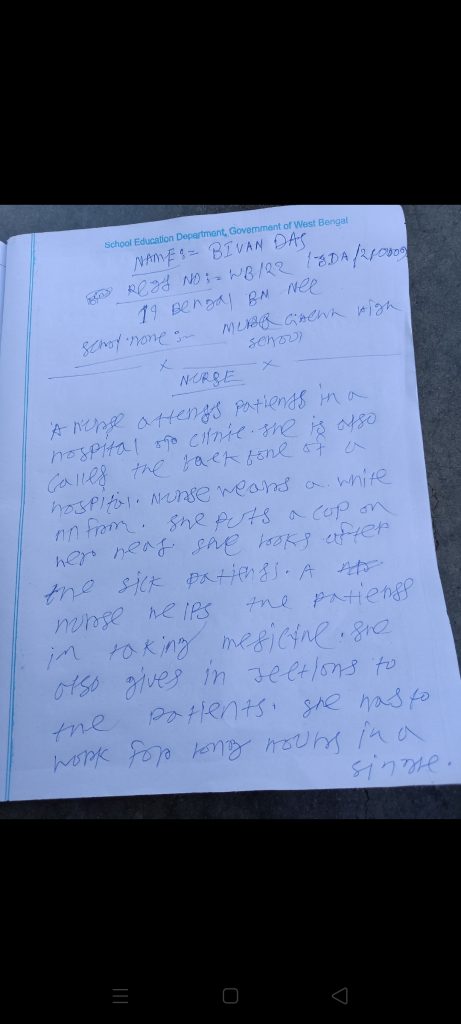 School Education Department, Government of West Bengal
NAME:= BIVAN DAS
Regd NO:= WB/22
19 Bengal BN NCC
School
NURSE
A nurse attends patients in a
hospital clinic. she is also
called the back bone of a
hospital. Nurse wears a white
she puts a cap on
her head. she looks after
the sick patients. A
nurse helps the patients
in taking medicine. she
also gives in jections to
the patients. she has to
work for long hours in a